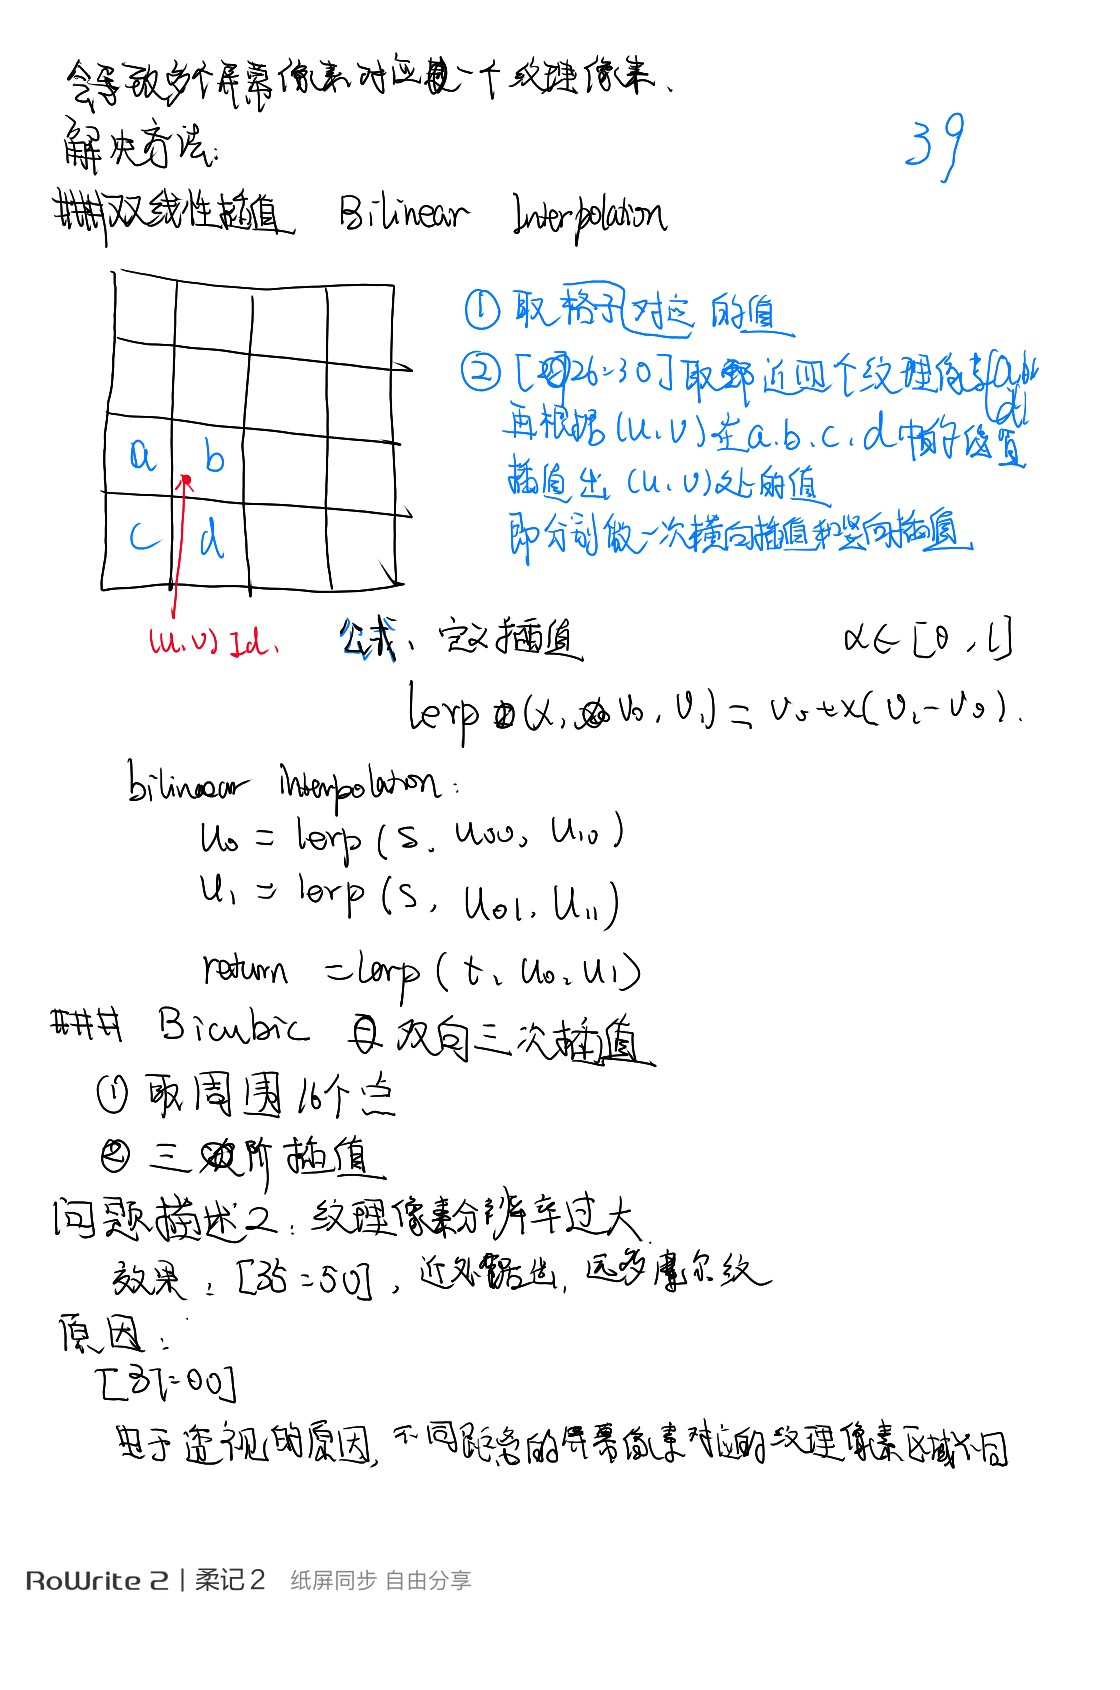 会导致多个屏幕像素对应一个纹理像素、
39
解决方法:
###双线性插值 Bilinear Interpolation
① 取格子对应的值
② [26:30]取邻近四个纹理像素(a,b,c,d)
再根据(u,v)在a.b.c.d中的位置
插值出(u,v)处的值
即分别做一次横向插值和竖向插值
a b
c d
(u,v)
公式、定义插值 α∈[0,1]
lerp(x, v₀, v₁) = v₀+x(v₁-v₀).
bilinear interpolation:
u₀ = lerp(s, u₀₀, u₁₀)
u₁ = lerp(s, u₀₁, u₁₁)
return =lerp(t, u₀, u₁)
### Bicubic 双向三次插值
① 取周围16个点
② 三阶插值
问题描述2:纹理像素分辨率过大
效果:[35:50],近处锯齿,远处摩尔纹
原因:
[37:00]
由于透视的原因,不同距离的屏幕像素对应的纹理像素区域不同
RoWrite 2 | 柔记2 纸屏同步 自由分享